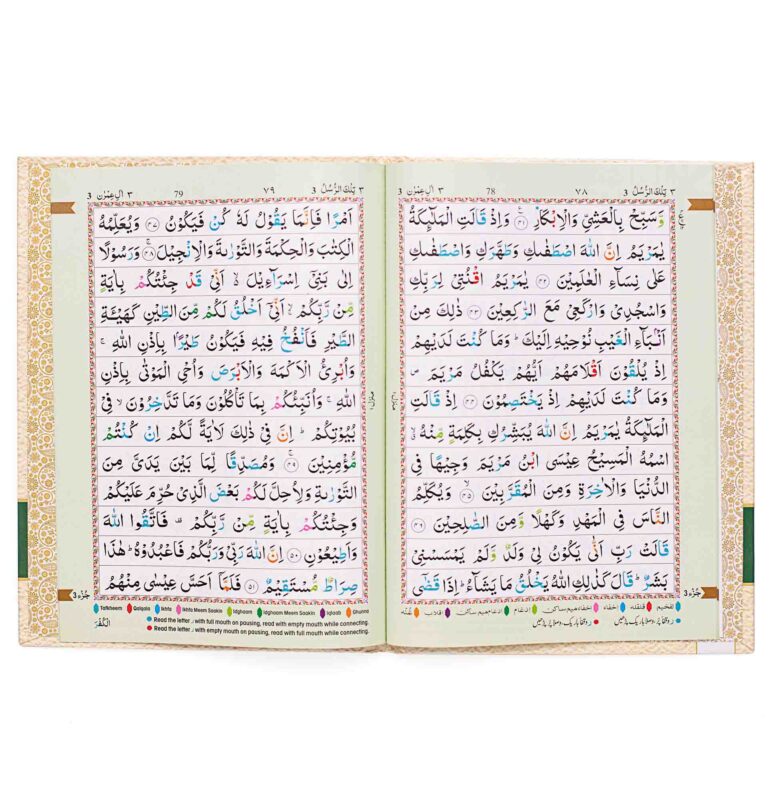 ٣ تِلْكَ الرُّسُلُ 3 ٧٨ 78 ٣ اٰلِ عِمْرٰن 3
وَّسَبِّحْ بِالْعَشِيِّ وَالْاِبْكَارِ ٤١ وَاِذْ قَالَتِ الْمَلٰٓئِكَةُ
يٰمَرْيَمُ اِنَّ اللّٰهَ اصْطَفٰىكِ وَطَهَّرَكِ وَاصْطَفٰىكِ
عَلٰى نِسَآءِ الْعٰلَمِيْنَ ٤٢ يٰمَرْيَمُ اقْنُتِيْ لِرَبِّكِ
وَاسْجُدِيْ وَارْكَعِيْ مَعَ الرّٰكِعِيْنَ ٤٣ ذٰلِكَ مِنْ
اَنْۢبَآءِ الْغَيْبِ نُوْحِيْهِ اِلَيْكَ ؕ وَمَا كُنْتَ لَدَيْهِمْ
اِذْ يُلْقُوْنَ اَقْلَامَهُمْ اَيُّهُمْ يَكْفُلُ مَرْيَمَ ص
وَمَا كُنْتَ لَدَيْهِمْ اِذْ يَخْتَصِمُوْنَ ٤٤ اِذْ قَالَتِ
الْمَلٰٓئِكَةُ يٰمَرْيَمُ اِنَّ اللّٰهَ يُبَشِّرُكِ بِكَلِمَةٍ مِّنْهُ ۖ
اسْمُهُ الْمَسِيْحُ عِيْسَى ابْنُ مَرْيَمَ وَجِيْهًا فِي
الدُّنْيَا وَالْاٰخِرَةِ وَمِنَ الْمُقَرَّبِيْنَ ٤٥ وَيُكَلِّمُ
النَّاسَ فِي الْمَهْدِ وَكَهْلًا وَّمِنَ الصّٰلِحِيْنَ ٤٦
قَالَتْ رَبِّ اَنّٰى يَكُوْنُ لِيْ وَلَدٌ وَّلَمْ يَمْسَسْنِيْ
بَشَرٌ ؕ قَالَ كَذٰلِكِ اللّٰهُ يَخْلُقُ مَا يَشَآءُ ؕ اِذَا قَضٰٓى
جُزْء 3
تفخیم قلقلہ اخفاء اخفاء میم ساکن ادغام ادغام میم ساکن اقلاب غنّہ
٣ تِلْكَ الرُّسُلُ 3 ٧٩ 79 ٣ اٰلِ عِمْرٰن 3
اَمْرًا فَاِنَّمَا يَقُوْلُ لَهٗ كُنْ فَيَكُوْنُ ٤٧ وَيُعَلِّمُهُ
الْكِتٰبَ وَالْحِكْمَةَ وَالتَّوْرٰىةَ وَالْاِنْجِيْلَ ٤٨ وَرَسُوْلًا
اِلٰى بَنِيْٓ اِسْرَآءِيْلَ ۙ اَنِّيْ قَدْ جِئْتُكُمْ بِاٰيَةٍ
مِّنْ رَّبِّكُمْ ۙ اَنِّيْٓ اَخْلُقُ لَكُمْ مِّنَ الطِّيْنِ كَهَيْئَةِ
الطَّيْرِ فَاَنْفُخُ فِيْهِ فَيَكُوْنُ طَيْرًۢا بِاِذْنِ اللّٰهِ ۚ
وَاُبْرِئُ الْاَكْمَهَ وَالْاَبْرَصَ وَاُحْيِ الْمَوْتٰى بِاِذْنِ
اللّٰهِ ۚ وَاُنَبِّئُكُمْ بِمَا تَاْكُلُوْنَ وَمَا تَدَّخِرُوْنَ ۙ فِيْ
بُيُوْتِكُمْ ؕ اِنَّ فِيْ ذٰلِكَ لَاٰيَةً لَّكُمْ اِنْ كُنْتُمْ
مُّؤْمِنِيْنَ ٤٩ وَمُصَدِّقًا لِّمَا بَيْنَ يَدَيَّ مِنَ
التَّوْرٰىةِ وَلِاُحِلَّ لَكُمْ بَعْضَ الَّذِيْ حُرِّمَ عَلَيْكُمْ
وَجِئْتُكُمْ بِاٰيَةٍ مِّنْ رَّبِّكُمْ ۫ فَاتَّقُوا اللّٰهَ
وَاَطِيْعُوْنِ ٥٠ اِنَّ اللّٰهَ رَبِّيْ وَرَبُّكُمْ فَاعْبُدُوْهُ ؕ هٰذَا
صِرَاطٌ مُّسْتَقِيْمٌ ٥١ فَلَمَّآ اَحَسَّ عِيْسٰى مِنْهُمُ
جُزْء 3
Tafkheem Qalqala Ikhfa Ikhfa Meem Saakin Idghaam Idghaam Meem Saakin Iqlaab Ghunna
الْكُفْرَ
Read the letter ر with full mouth on pausing, read with empty mouth while connecting.
Read the letter ر with empty mouth on pausing, read with full mouth while connecting.